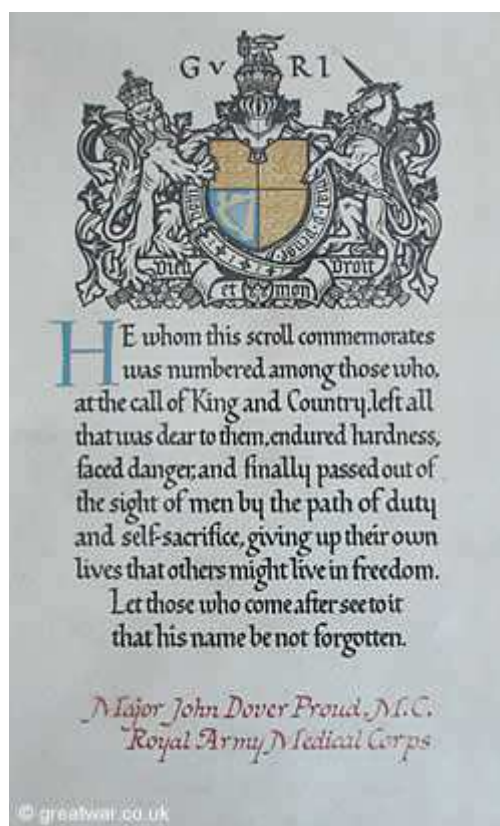 G V R I
Dieu et mon Droit
HE whom this scroll commemorates
was numbered among those who,
at the call of King and Country, left all
that was dear to them, endured hardness,
faced danger, and finally passed out of
the sight of men by the path of duty
and self-sacrifice, giving up their own
lives that others might live in freedom.
Let those who come after see to it
that his name be not forgotten.
Major John Dover Proud, M.C.
Royal Army Medical Corps
© greatwar.co.uk